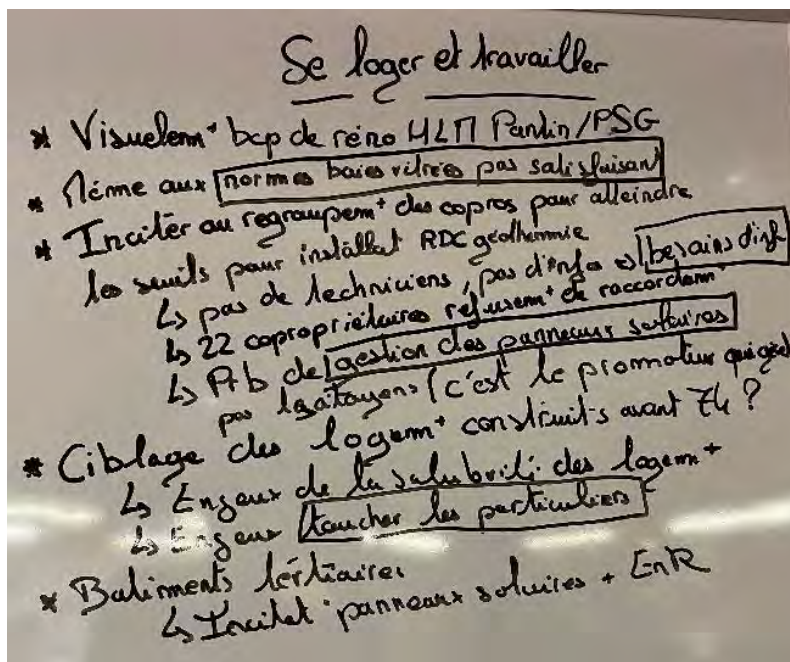 Se loger et travailler
* Visuelem⁺ bcp de réno HLM Pantin/PSG
* Même aux normes baies vitrées pas satisfaisant
* Inciter au regroupem⁺ des copros pour atteindre
les seuils pour installat° RDC géothermie
↳ pas de techniciens, pas d'infos besoins d'inf
↳ 22 copropriétaires refusem⁺ de raccordem⁺
↳ Pb de gestion des panneaux solaires
pas citoyens (c'est le promoteur qui gère)
* Ciblage des logem⁺ construits avant 74 ?
↳ Enjeux de la salubrité des logem⁺
↳ Enjeux toucher les particuliers
* Batiments tertiaires
↳ Incitat° panneaux solaires + EnR